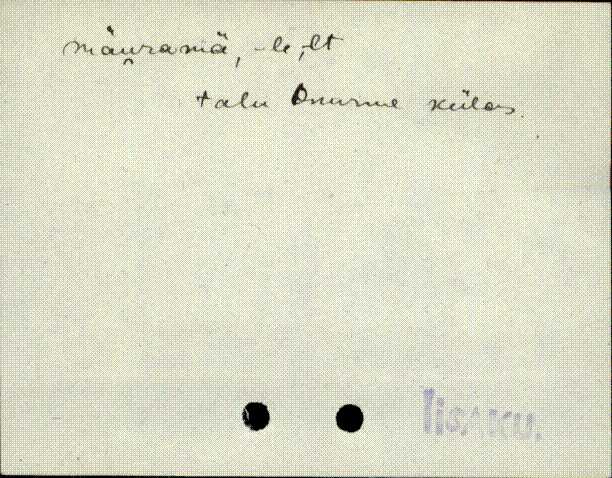 mäu̯ramä, -le, -lt
talu Onurme külas.
Iisaku.